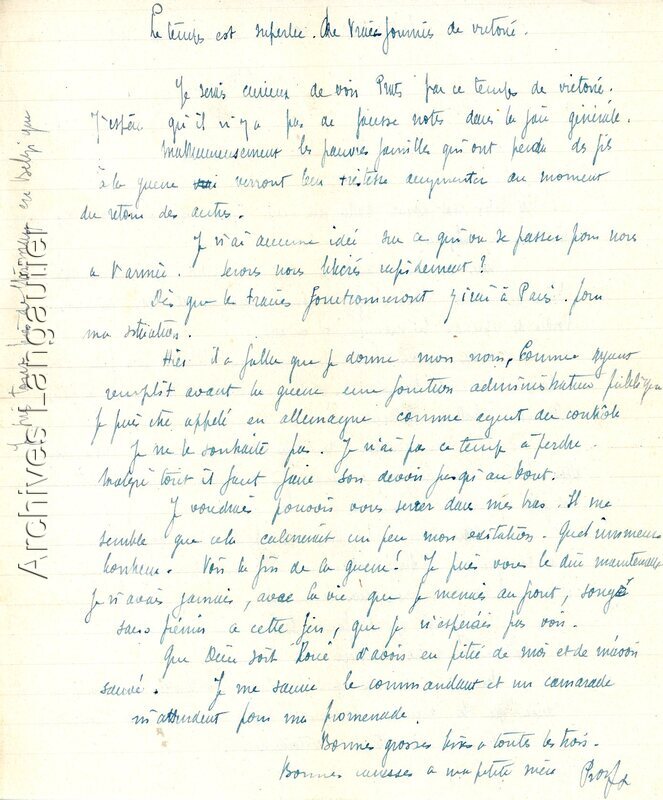 Le temps est superbe. De vraies journées de victoire.
Je serais curieux de voir Prats par ce temps de victoire.
J'espère qu'il n'y a pas de fausse notes dans la joie générale.
Malheureusement les pauvres familles qui ont perdu des fils
à la guerre verront leur tristesse augmenter au moment
du retour des autres.
Je n'ai aucune idée sur ce qui va se passer pour nous
à l'armée. Serons nous libérés rapidement ?
Dès que les trains fonctionneront j'irai à Paris. pour
ma situation.
Hier il a fallu que je donne mon nom, Comme ayant
remplit avant la guerre une fonction administrative publique
je puis être appelé en allemagne comme agent du contrôle
Je ne le souhaite pas. Je n'ai pas ce temps à perdre.
Malgré tout il faut faire son devoir jusqu'au bout.
Je voudrais pouvoir vous serrer dans mes bras. Il me
semble que cela calmerait un peu mon exitation. Quel immense
bonheur. Voir la fin de la guerre ! Je puis vous le dire maintenant
Je n'avais jamais, avec la vie que je menais au front, songé
sans frémir à cette fin, que je n'espérais pas voir.
Que Dieu soit loué d'avoir eu pitié de moi et de m'avoir
sauvé. Je me sauve le commandant et un camarade
m'attendent pour ma promenade.
Bonnes grosses bises à toutes les trois.
Bonnes caresses à ma petite mère
en Belgique
Archives Langautier